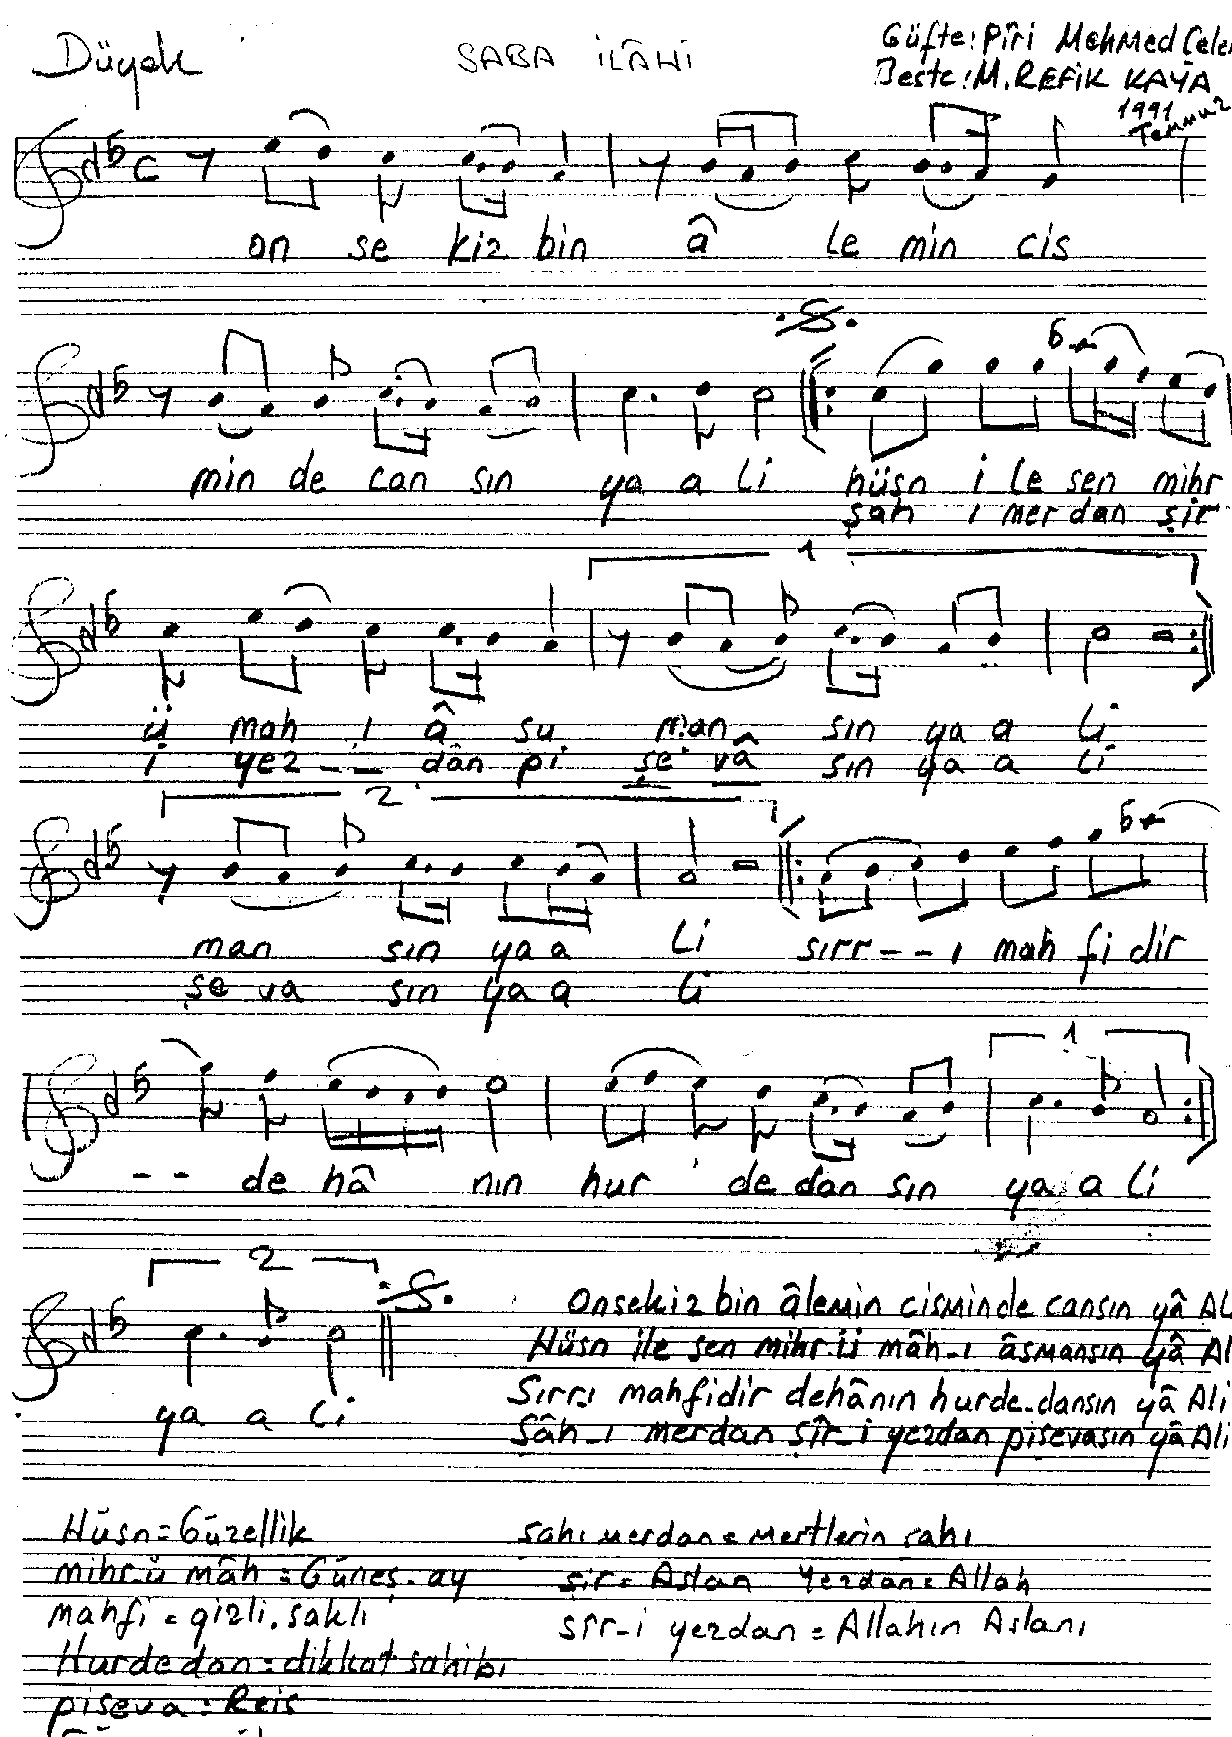 Düyek
SABA İLÂHİ
Güfte: Pîri Mehmed Çele
Beste: M. REFİK KAYA
1991
Temmuz
on se kiz bin â le min cis
min de can sın ya a li hüsn i le sen mihr
şah ı mer dan şir
1
ü mah ı â su man sın ya a li
i yez - - dân pi şe vâ sın ya a li
2
man sın ya a li sırr - - - ı mah fi dir
şe va sın ya a li
1
- - de hâ nın hur de dan sın ya a li
2
ya a li
Onsekiz bin âlemin cisminde cansın yâ Al
Hüsn ile sen mihr-ü mâh-ı âsmansın yâ Al
Sırrı mahfidir dehânın hurde-dansın yâ Ali
Şâh-ı merdan şîr-i yezdan pişevasın yâ Ali
Hüsn = Güzellik
mihr-ü mâh = Güneş-ay
mahfi = gizli, saklı
Hurdedan = dikkat sahibi
pişeva = Reis
şahı merdan = mertlerin şahı
şir = Aslan Yezdan = Allah
şîr-i yezdan = Allahın Aslanı